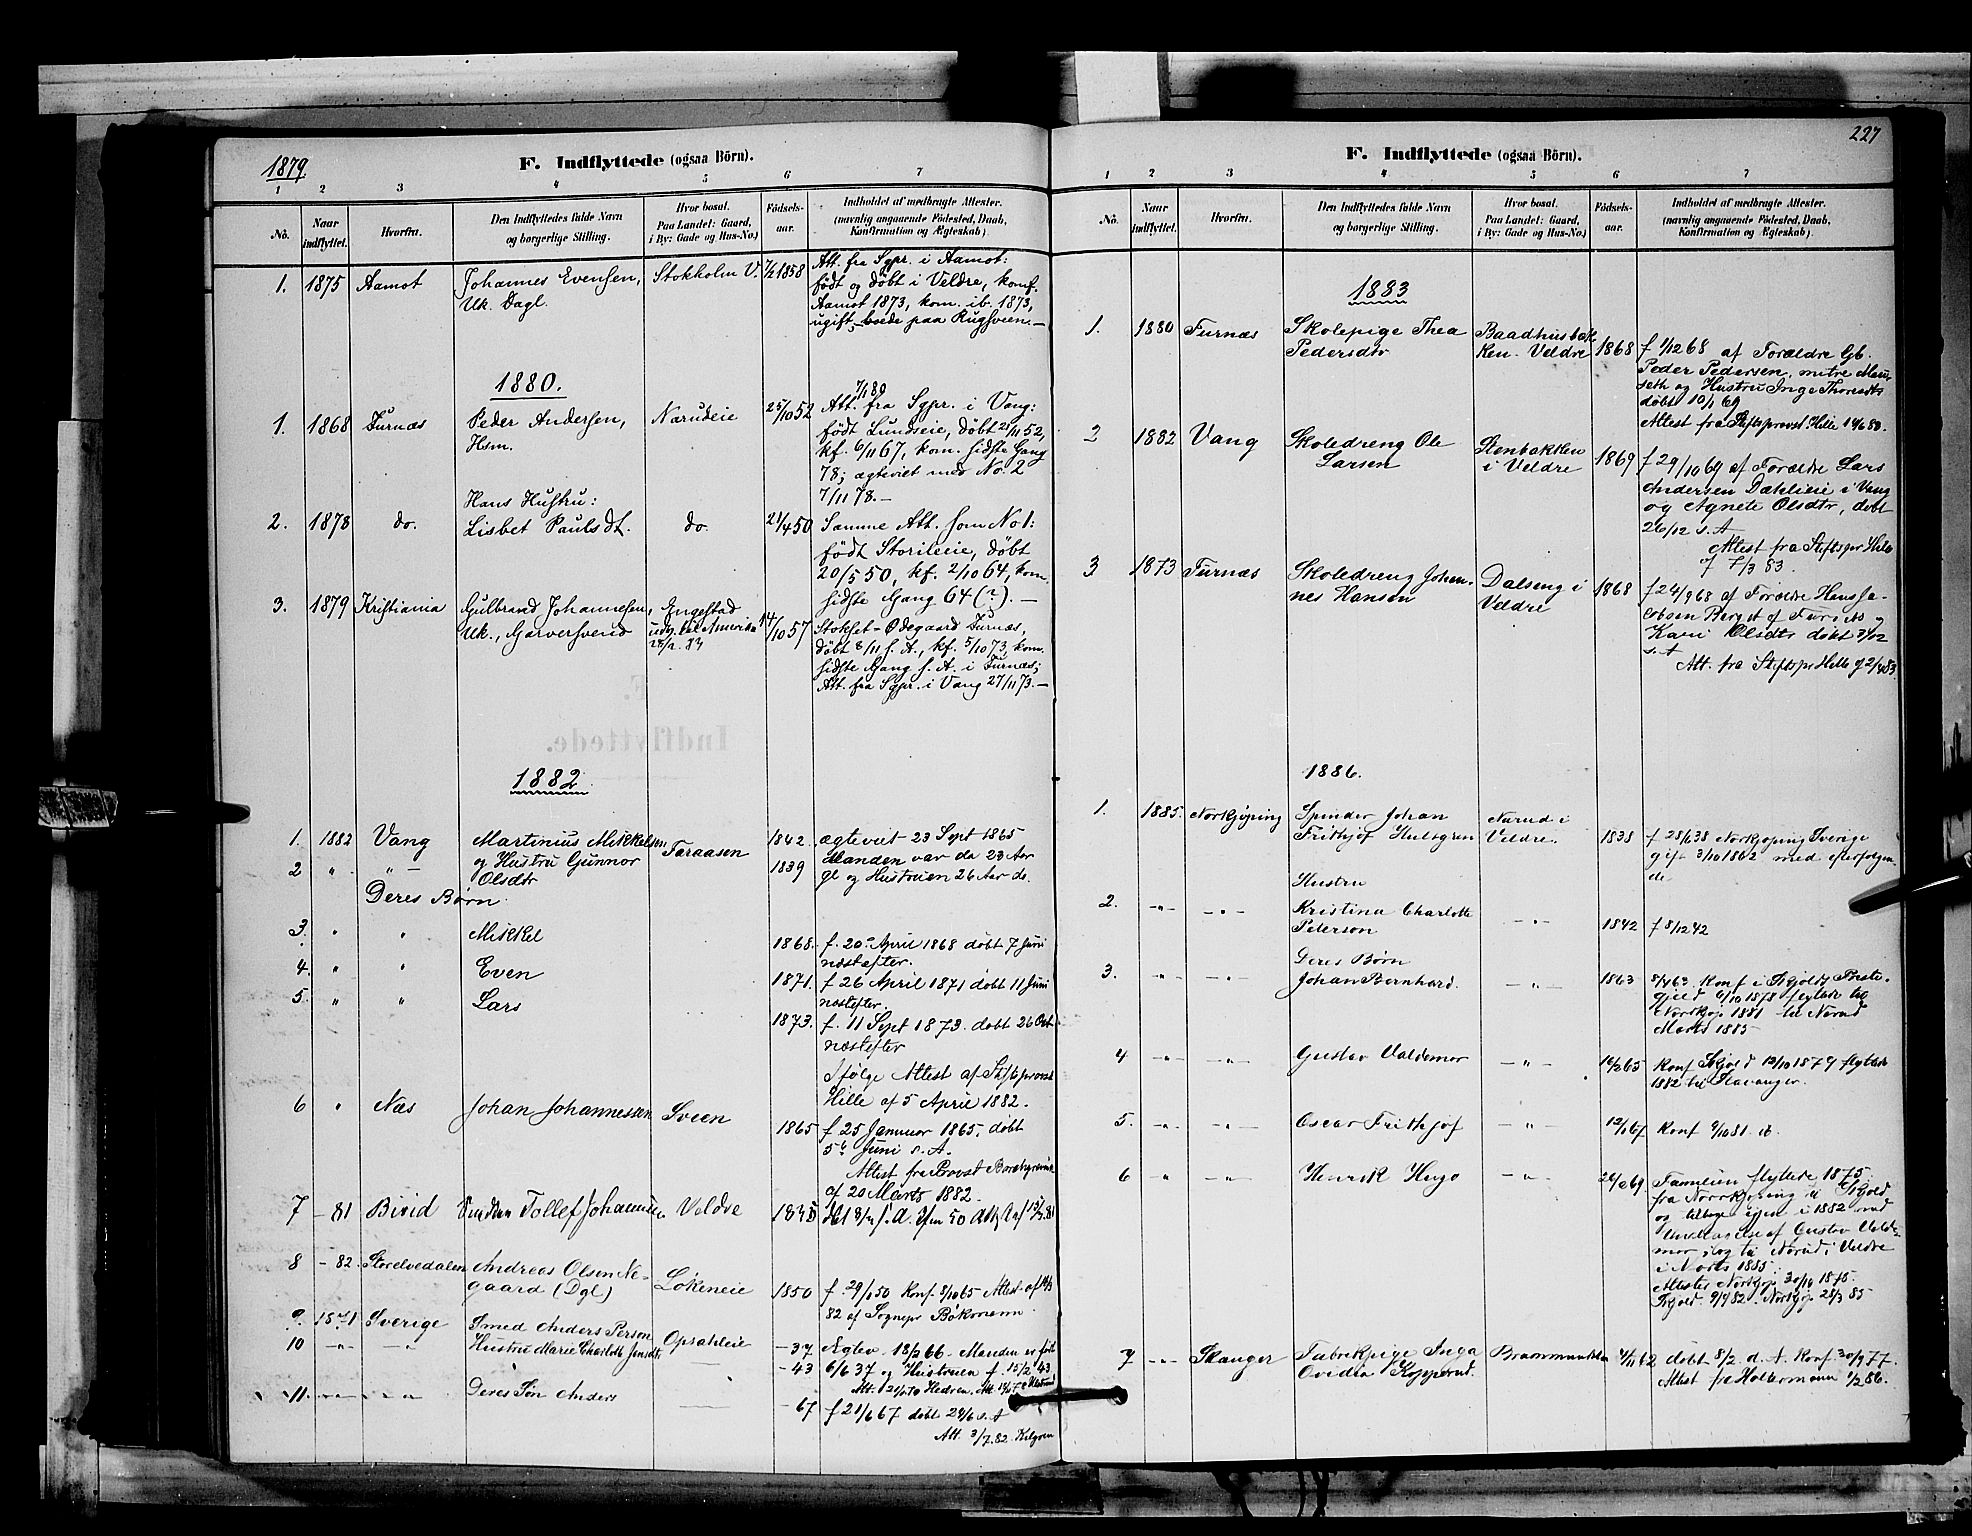 1879
F. Indflyttede (ogsaa Börn).
1 2 3 4 5 6 7
No.
Naar indflyttet.
Hvorfra.
Den Indflyttedes fulde Navn
og borgerlige Stilling.
Hvor bosat.
Paa Landet: Gaard,
i By: Gade og Hus-No.)
Födsels-
aar.
Indholdet af medbragte Attester.
(navnlig angaaende Födested, Daab,
Konfirmation og Ægteskab).
1. 1875 Aamot Johannes Evensen, Stokholm V. 7/2 1858 Att. fra Sgpr. i Aamot:
Uk. Dagl. født og døbt i Veldre, konf.
Aamot 1873, kom. ib. 1873,
ugift, boede paa Rugsveen.—
1880.
7/1 80
1. 1868 Furnæs Peder Andersen, Narudeie 25/10 52 Att. fra Sgpr. i Vang:
Hsm. født Lundseie, døbt 25/11 52,
kf. 6/11 67, kom. sidste Gang
78; ægteviet med No. 2
7/11 78.—
Hans Hustru:
2. 1878 do. Lisbet Paulsdt. do. 21/4 50 Samme Att. som No 1:
født Storileeie, døbt
20/5 50, kf. 2/10 64, kom.
sidste Gang 64 (?).—
3. 1879 Kristiania Gulbrand Johannesen, Engestad 14/10 57 Stokset-Ødegaard Furnæs,
Uk., Garversvend udg. til Amerika døbt 8/11 s. A., kf. 5/10 73, kom.
sidste Gang s. A. i Furnæs;
Att. fra Sgpr. i Vang 27/11 73.—
1882
1. 1882 Vang Martinius Mikkelsen Faraasen 1842 ægteviet 23 Sept 1865
2 " " og Hustru Gunnor 1839 Manden var da 23 Aar
Olsdtr gl og Hustruen 26 Aar do.
Deres Børn
3. " " Mikkel 1868. f. 20 April 1868 døbt 7 Juni
næstefter.
4. " " Even 1871. f 26 April 1871 døbt 11 Juni
næstefter.
5. " " Lars 1873. f. 11 Sept 1873. døbt 26 Oct
næstefter
Ifølge Attest af Stiftsprovst
Hille af 5 April 1882.
6 " Næs Johan Johannessen Sveen 1865 f. 25 Januar 1865, døbt
5 Juni s. A.
Attest fra Provst
af 20 Marts 1882.
7 – 81 Birid Tollef Johannesen Veldre
8 – 82 Storelvedalen Andreas Olsen Ne- Løkeneie 1850 f. 29/1 50 Konf. 8/10 65 Attest af
gaard (Dgl) 82 af Sognepr Bøkmann.
9. Sverige Smed Anders Person Opsahleie – 37 Ægtev. 18/2 66. Manden er født
10 Hustru Marie Charlotte – 43 6/6 37 og Hustruen f. 15/2 43
11 Deres Søn Anders – 67 f 21/6 67 døbt 24/6 s. A
Att. 3/7. 82
227
F. Indflyttede (ogsaa Börn).
1 2 3 4 5 6 7
No.
Naar indflyttet.
Hvorfra.
Den Indflyttedes fulde Navn
og borgerlige Stilling.
Hvor bosat.
Paa Landet: Gaard,
i By: Gade og Hus-No.)
Födsels-
aar.
Indholdet af medbragte Attester.
(navnlig angaaende Födested, Daab,
Konfirmation og Ægteskab).
1883
1. 1880 Furnæs Skolepige Thea Baadhusbak-
Pedersdtr ken. Veldre 1868 f 1/12 68 af Forældre Gb.
Peder Pedersen,
og Hustru Inge
døbt 10/1 69
Attest fra Stiftsprovst Hille
2 1882 Vang Skoledreng Ole Stenbakken
Larsen i Veldre 1869 f 29/10 69 af Forældre Lars
Andersen Dæhlieie i Vang
og Agnete Olsdtr, døbt
26/12 s. A
Attest fra Stiftspr Hille
7/3 83.
3 1873 Furnæs Skoledreng Johan- Dalseng i 1868 f 24/9 68 af Forældre Hans Ja-
nes Hansen Veldre cobsen Berget af Furnæs og
Kari Olsdtr døbt
s. A
Att. fra Stiftspr Hille
1886.
1. 1885. Norkjøping Spinder Johan Narud i
Frithjof Hultgren Veldre. 1838 f 28/6 38 Norkjøping Sverige
gift 3/10 1862 med efterfølgen
de
Hustru
2. Kristina Charlotte
Peterson 1842 f 8/12 42
Deres Børn
3. Johan Bernhard. 1863 Konf i Skjold Preste-
gjeld 6/10 1878 flyttede til
Norrkjøp 1881 til Narud
Marts 1885
4 Gustav Valdemar Konf Skjold 12/10 1879 flyttede
1882 til Stavanger.
5. Oscar Frithjof Konf 9/10 81 ib.
6 Henrik Hugo 24/6 69 Familien flyttede 1875
fra Norrkjøping til Skjold
og tilbage igjen i 1882 med
Undtagelse af Gustav Valde-
mar, og til Narud i Veldre
i Marts 1885.
Attester Norrkjøp. 30/10 1875.
Skjold. 9/9 82. Norrkjøp 28/3 85
7 Skanger Fabrikpige Inga
Ovidia døbt 8/2. d. A. Konf 30/9 77.
Attest fra Holtermann 1/2 86.